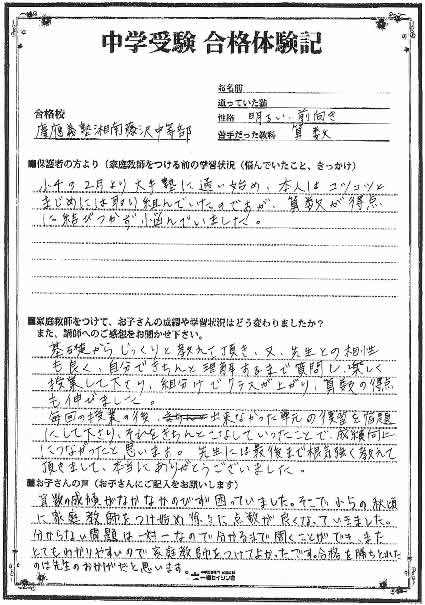 中学受験 合格体験記
お名前
通っていた塾
合格校
性格 明るい、前向き
慶應義塾湘南藤沢中等部
苦手だった教科 算数
■保護者の方より(家庭教師をつける前の学習状況(悩んでいたこと、きっかけ)
小4の2月より大手塾に通い始め、本人はコツコツと
まじめには取り組んでいたのですが、算数が得点
に結びつかず悩んでいました。
■家庭教師をつけて、お子さんの成績や学習状況はどう変わりましたか?
また、講師へのご感想をお聞かせ下さい。
基礎からじっくりと教えて頂き、又、先生との相性
も良く、自分できちんと理解するまで質問し、楽しく
授業して下さり、組分けでクラスが上がり、算数の得点
も伸びました。
毎回の授業の後、出来なかった単元の復習を宿題
にして下さり、それをきちんとこなしていったことで、成績向上
につながったと思います。先生には最後まで根気強く教えて
頂きまして、本当にありがとうございました。
■お子さんの声(お子さんにご記入をお願いします)
算数の成績がなかなかのびず困っていました。そこで、小5の秋頃
に家庭教師をつけ始め、徐々に点数が良くなっていきました。
分からない問題は一対一なので分かるまで聞くことができ、また
とてもわかりやすいので家庭教師をつけてよかったです。合格を勝ちとれた
のは先生のおかげだと思います。
一橋セイシン会